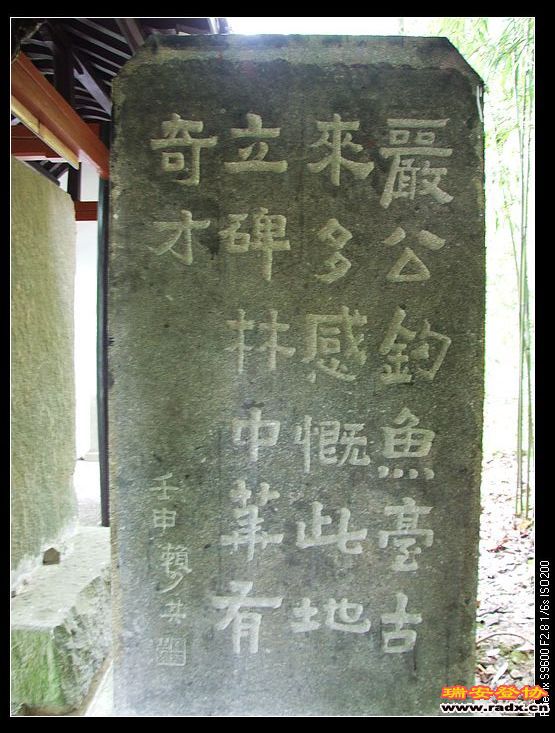 嚴公釣魚臺古
來多感慨此地
立碑林中華有
奇才
壬申賴少其
瑞安登协
www.radx.cn
x S9600 F2.8 1/6s ISO200